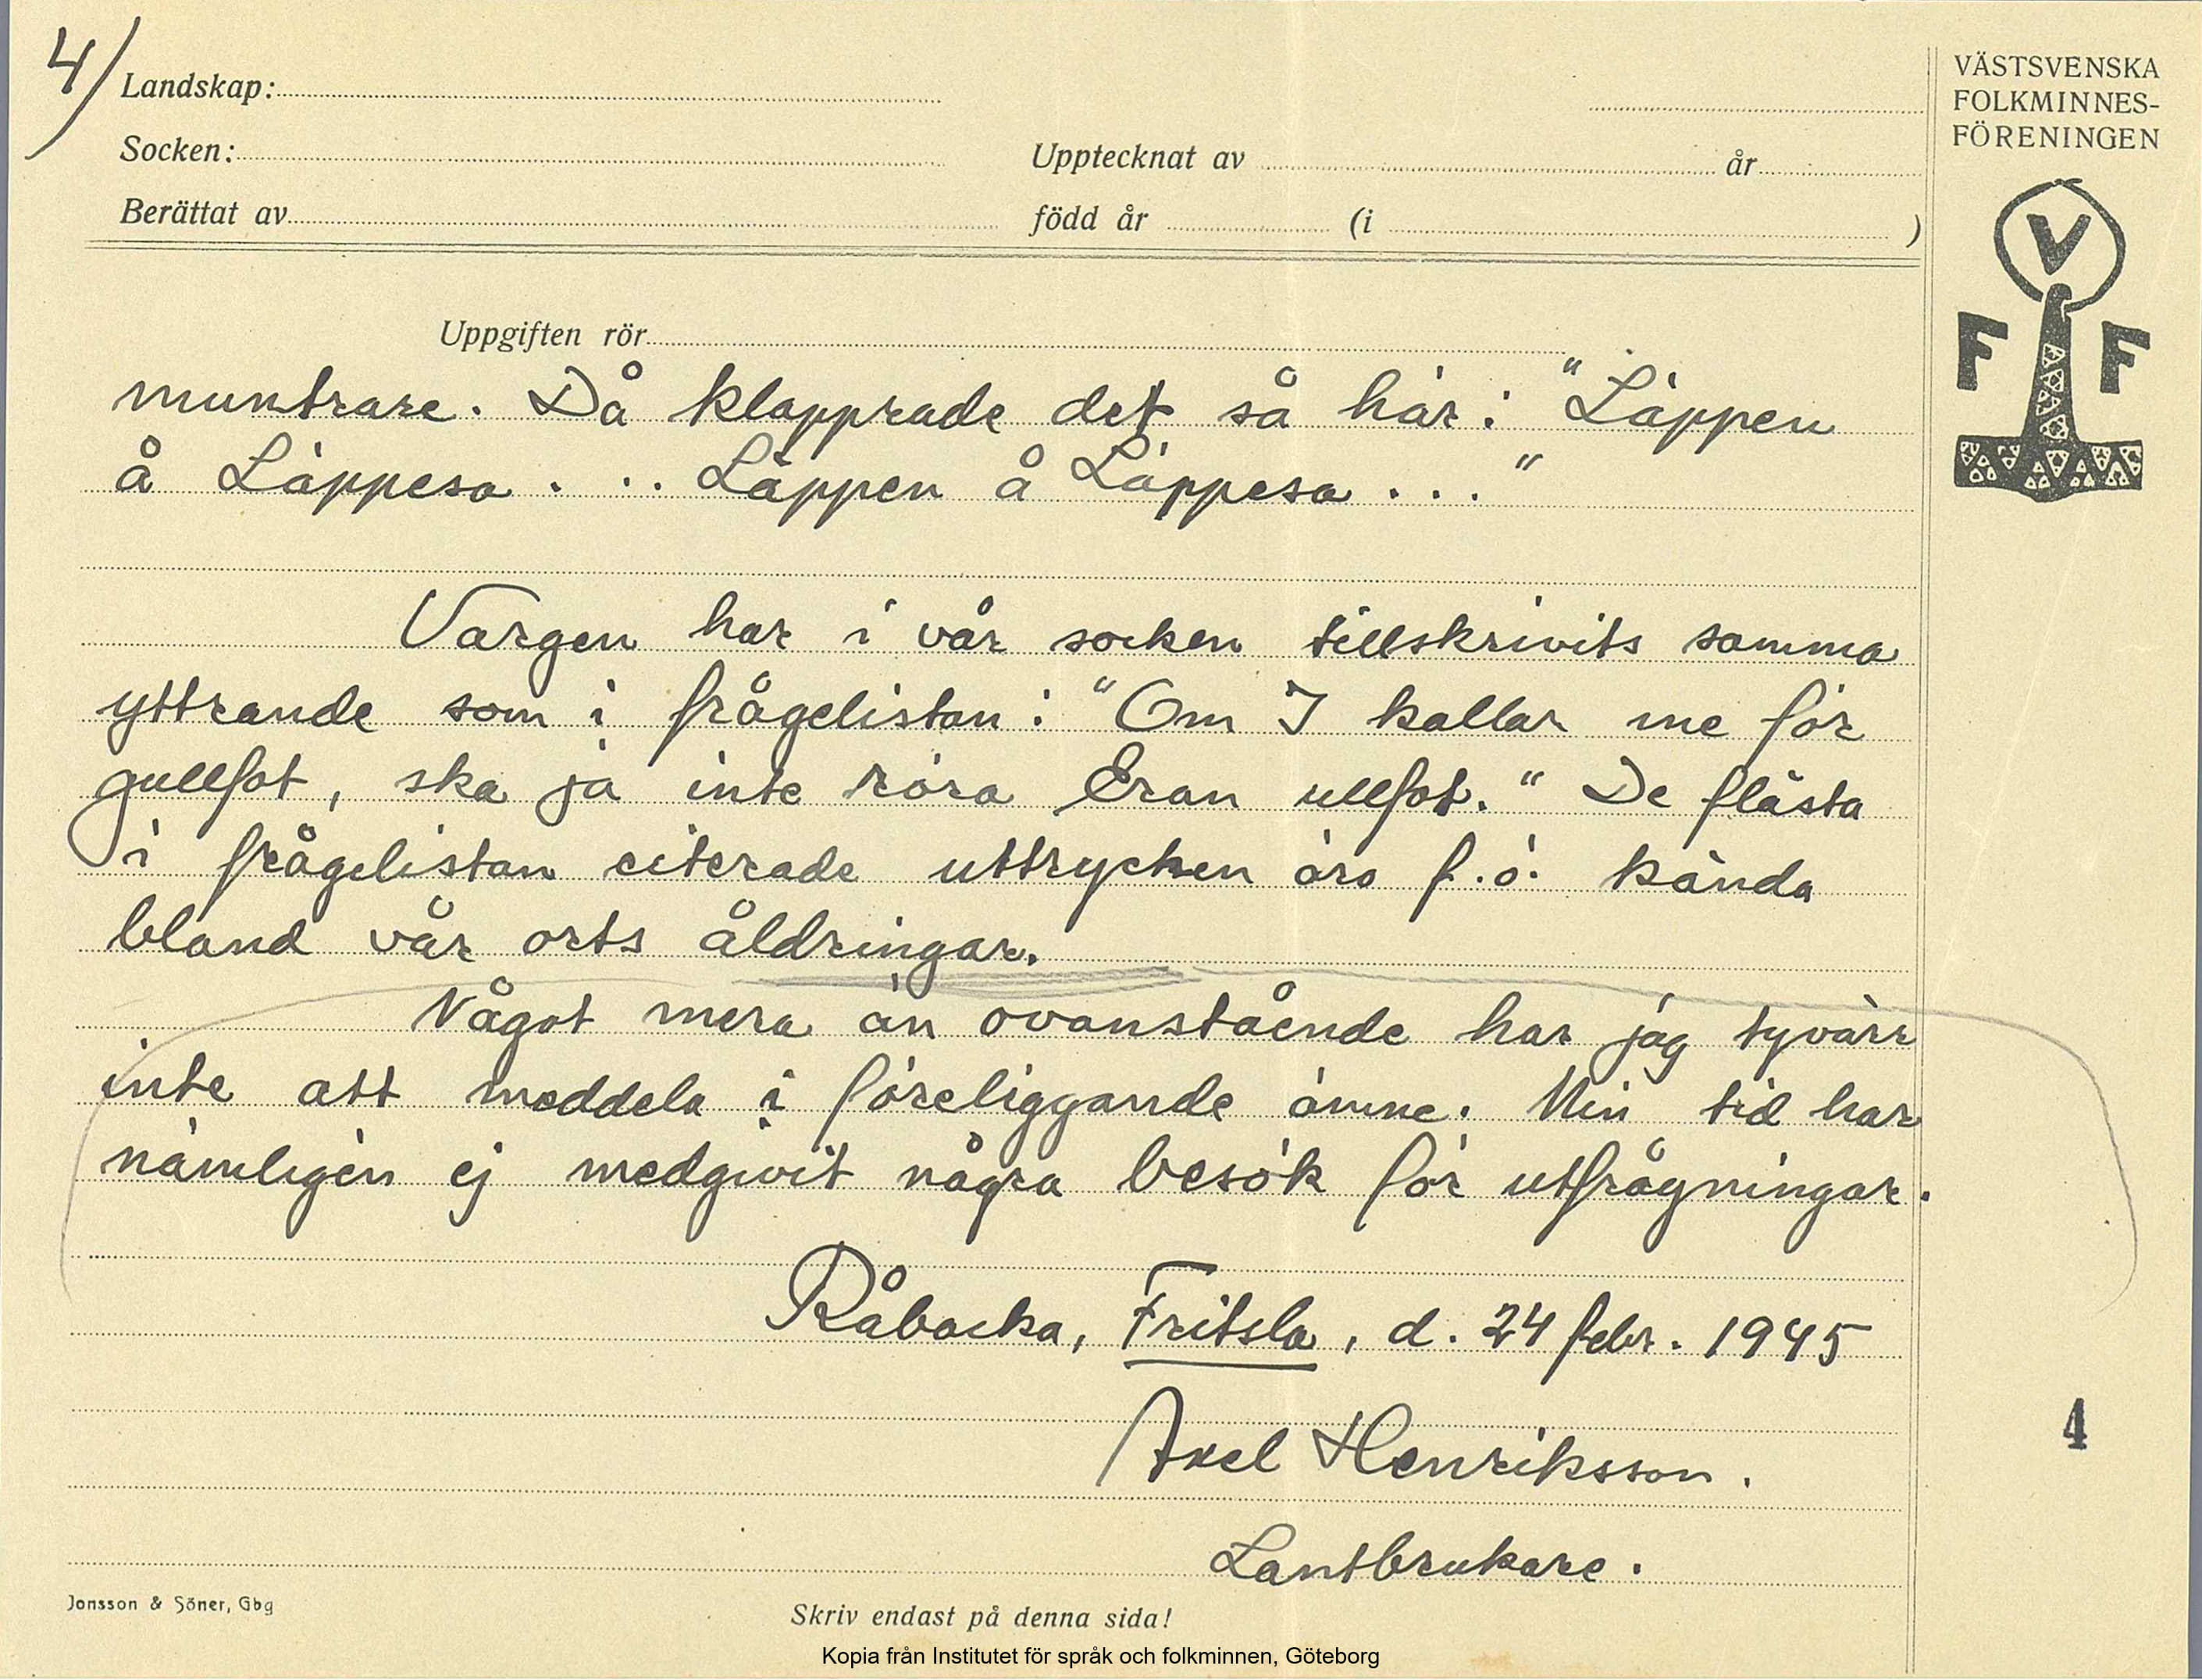 4/
Landskap:
Socken:
Upptecknat av år
Berättat av
född år (i )
VÄSTSVENSKA
FOLKMINNES-
FÖRENINGEN
V
F F
Uppgiften rör
muntrare. Då klapprade det så här: "Läppen
å Läppesa . . . Läppen å Läppesa . . . "
Vargen har i vår socken tillskrivits samma
yttrande som i frågelistan: "Om I kallar me för
gullfot, ska ja inte röra Eran ullfot." De flästa
i frågelistan citerade uttrycken äro f.ö. kända
bland vår orts åldringar.
Något mera än ovanstående har jag tyvärr
inte att meddela i föreliggande ämne. Min tid har
nämligen ej medgivit några besök för utfrågningar.
Råbacka, Fritsla, d. 24 febr. 1945
Axel Henriksson.
Lantbrukare.
4
Jonsson & Söner, Gbg
Skriv endast på denna sida!
Kopia från Institutet för språk och folkminnen, Göteborg